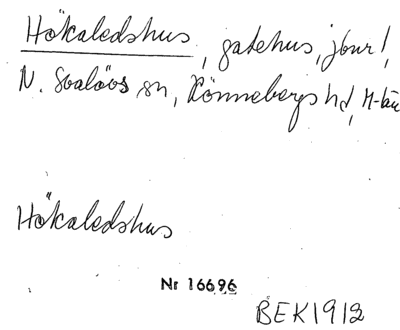 Hökaledshus, gatehus, jbur!,
N. Svalövs sn, Rönnebergs hd, M-län
Hökaledshus
Nr 16696
BEK 1912